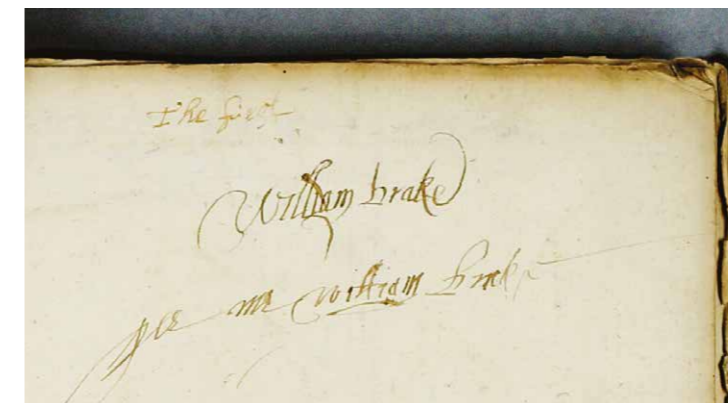 The first
William brake
per me william brake